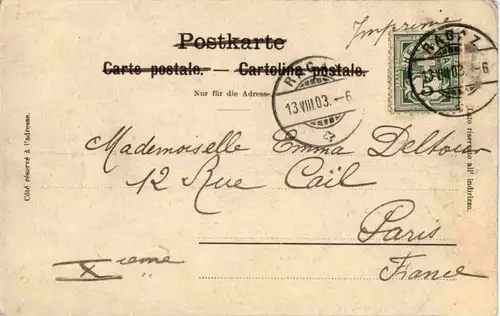 Imprimé
Postkarte
Carte postale. — Cartolina postale.
Nur für die Adresse
RAGAZ
13.VIII.03.-6
RAGAZ
13.VIII.03.-6
5
Côté réservé à l'adresse.
Lato riservato all' indirizzo.
Mademoiselle Emma Deltour
12 Rue Caïl
Paris
Xieme
France